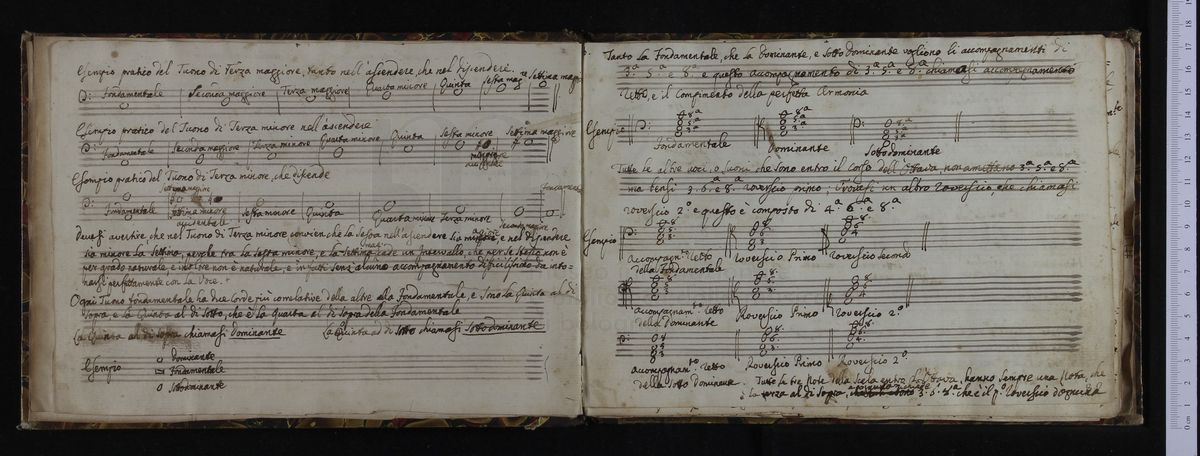 Esempio pratico del Tuono di Terza maggiore, tanto nell'ascendere, che nel discendere.
Fondamentale Seconda maggiore Terza maggiore Quarta minore Quinta Sesta mag.re Settima magg.
Esempio pratico del Tuono di Terza minore nell'ascendere
Fondamentale Seconda maggiore Terza minore Quarta minore Quinta Sesta minore Settima maggiore
Esempio pratico del Tuono di Terza minore, che discende
Fondamentale Settima minore Sesta minore Quinta Quarta minore Terza minore
Devesi avertire, che nel Tuono di Terza minore convien che la Sesta nell'ascendere sia maggiore, e nel discendere
sia minore la Settima, perche tra la Sesta minore, e la Settima un Intervallo, che per se stesso non è
per grado naturale, e non è naturale, e in fatti senz'alcuno accompagnamento difficilissimo da into-
narsi perfettamente con la Voce.
Ogni Tuono fondamentale ha due Corde più correlative delle altre alla Fondamentale, e sono la Quinta al di
Sopra, e la Quinta al di Sotto, che è la Quarta al di Sopra della Fondamentale
La Quinta al di Sopra chiamasi Dominante La Quinta al di Sotto chiamasi Sottodominante
Esempio
Dominante
Fondamentale
Sottominante
Tanto la Fondamentale, che la Dominante, e Sotto Dominante vogliono li accompagnamenti di
3.ª 5.ª e 8.ª e questo accompagnamento di 3.ª 5.ª e 8.ª chiamasi accompagnamento
retto, e il compimento della perfetta Armonia
Esempio
Fondamentale Dominante Sottodominante
Tutte le altre voci, o suoni che sono entro il corso dell'Ottava non amettono 3.ª 5.ª e 8.ª
ma bensi 3. 6. e 8. roversio primo; trovasi un altro roversio, che chiamasi
roversio 2.º e questo è composto di 4.ª 6.ª e 8.ª
Esempio
accompagn. retto Roversio Primo Roversio Secondo
della Fondamentale
accompagnam.to retto Roversio Primo Roversio 2.º
della Dominante
accompagnam.to retto Roversio Primo Roversio 2.º
della Sotto Dominante
Tutte le tre Note della Scala entro l'ottava, hanno sempre una Nota, che
è la terza al di Sopra, 3. 5. 8. che è il p.º roversio